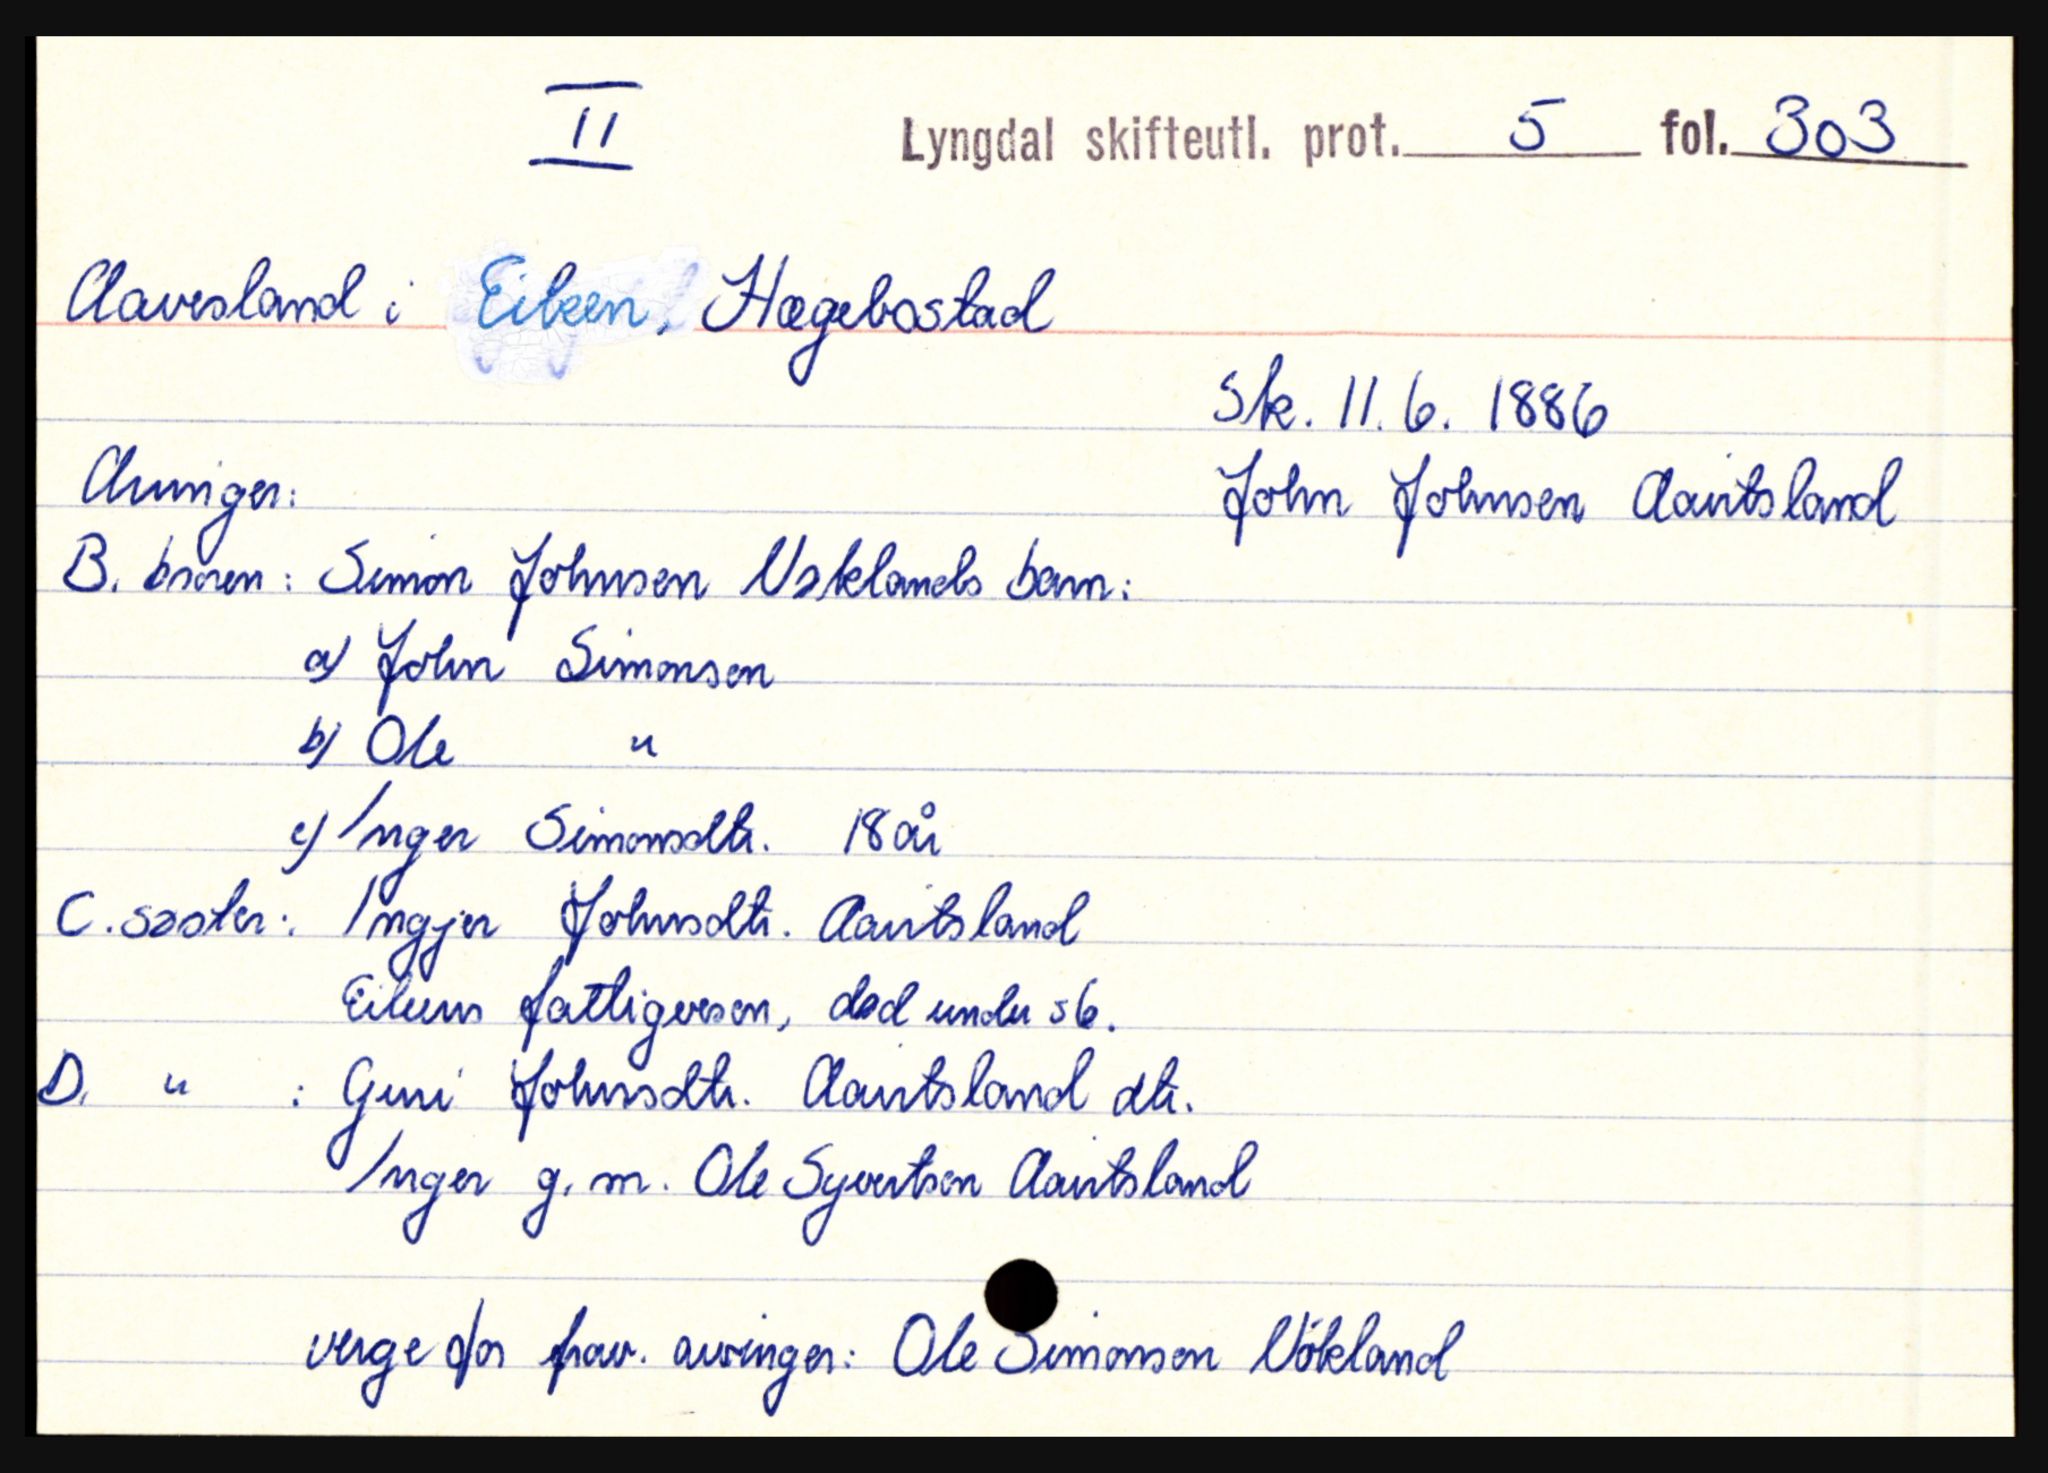 II
Lyngdal skifteutl. prot. 5 fol. 303
Aavesland i Eiken, Hægebostad
Sk. 11.6. 1886
John Johnsen Aavitsland
Arvinger:
B. broren: Simon Johnsen Nøklands barn:
a) John Simonsen
b) Ole "
c) Inger Simonsdtr. 18 år
C. søster: Ingjer Johnsdtr. Aavitsland
Eikens fattigvesen, død under sk.
D. " : Guri Johnsdtr. Aavitsland dtr.
Inger g.m. Ole Syvertsen Aavitsland
verge for frav. arvinger: Ole Simonsen Nökland